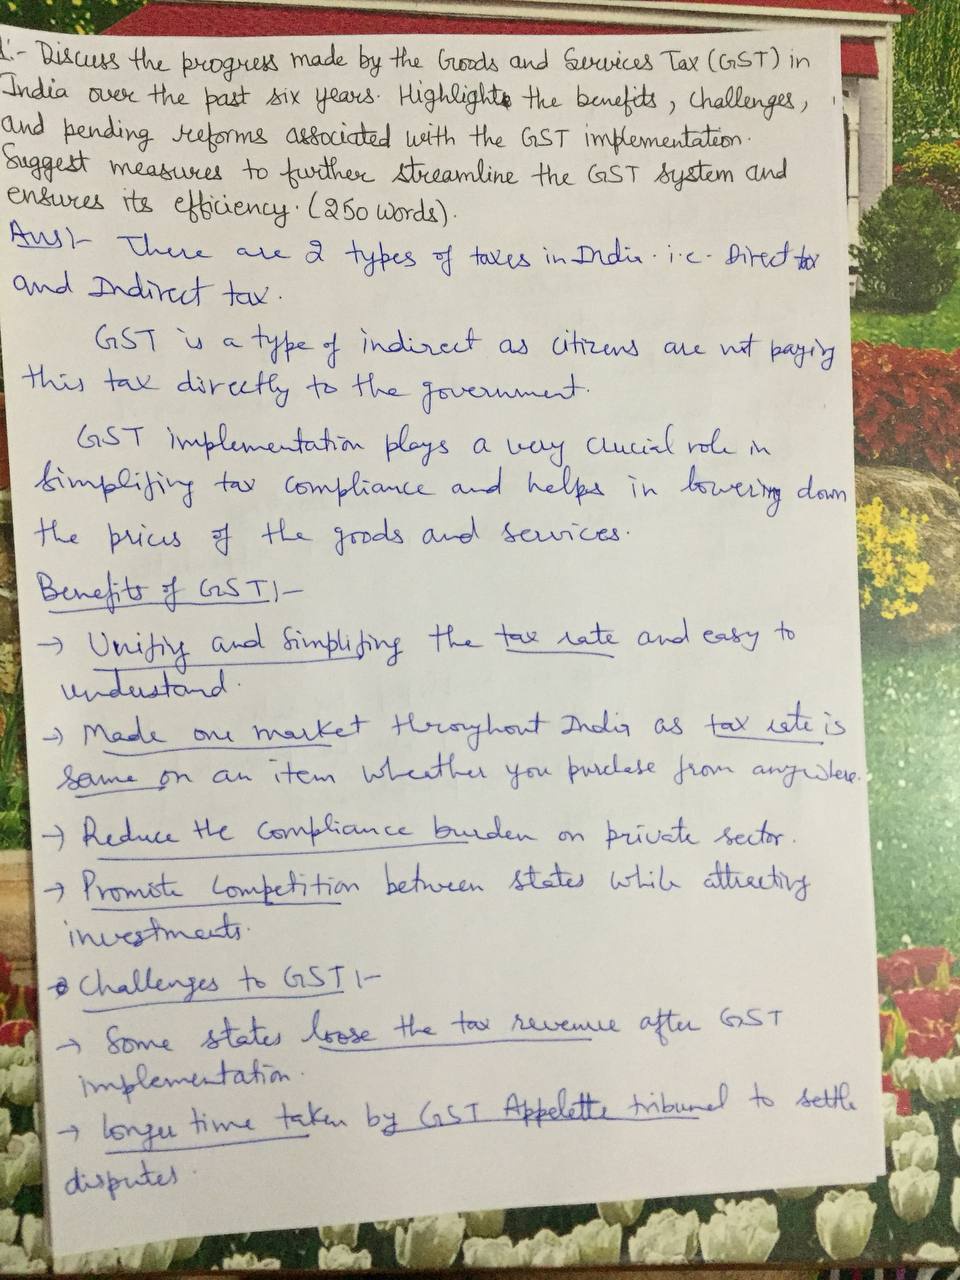 1:- Discuss the progress made by the Goods and Services Tax (GST) in
India over the past six years. Highlight the benefits, challenges,
and pending reforms associated with the GST implementation.
Suggest measures to further streamline the GST system and
ensures its efficiency. (250 words).
Ans:- There are 2 types of taxes in India. i.e. Direct tax
and Indirect tax.
GST is a type of indirect as citizens are not paying
this tax directly to the government.
GST implementation plays a very crucial role in
simplifing tax compliance and helps in lowering down
the prices of the goods and services.
Benefits of GST:-
→ Unifiy and Simplifing the tax rate and easy to
understand.
→ Made one market throughout India as tax rate is
same on an item wheather you purchase from anywhere.
→ Reduce the compliance burden on private sector.
→ Promote Competition between states while attracting
investments.
Challenges to GST:-
→ Some states loose the tax revenue after GST
implementation.
→ Longer time taken by GST Appelette tribunal to settle
disputes.